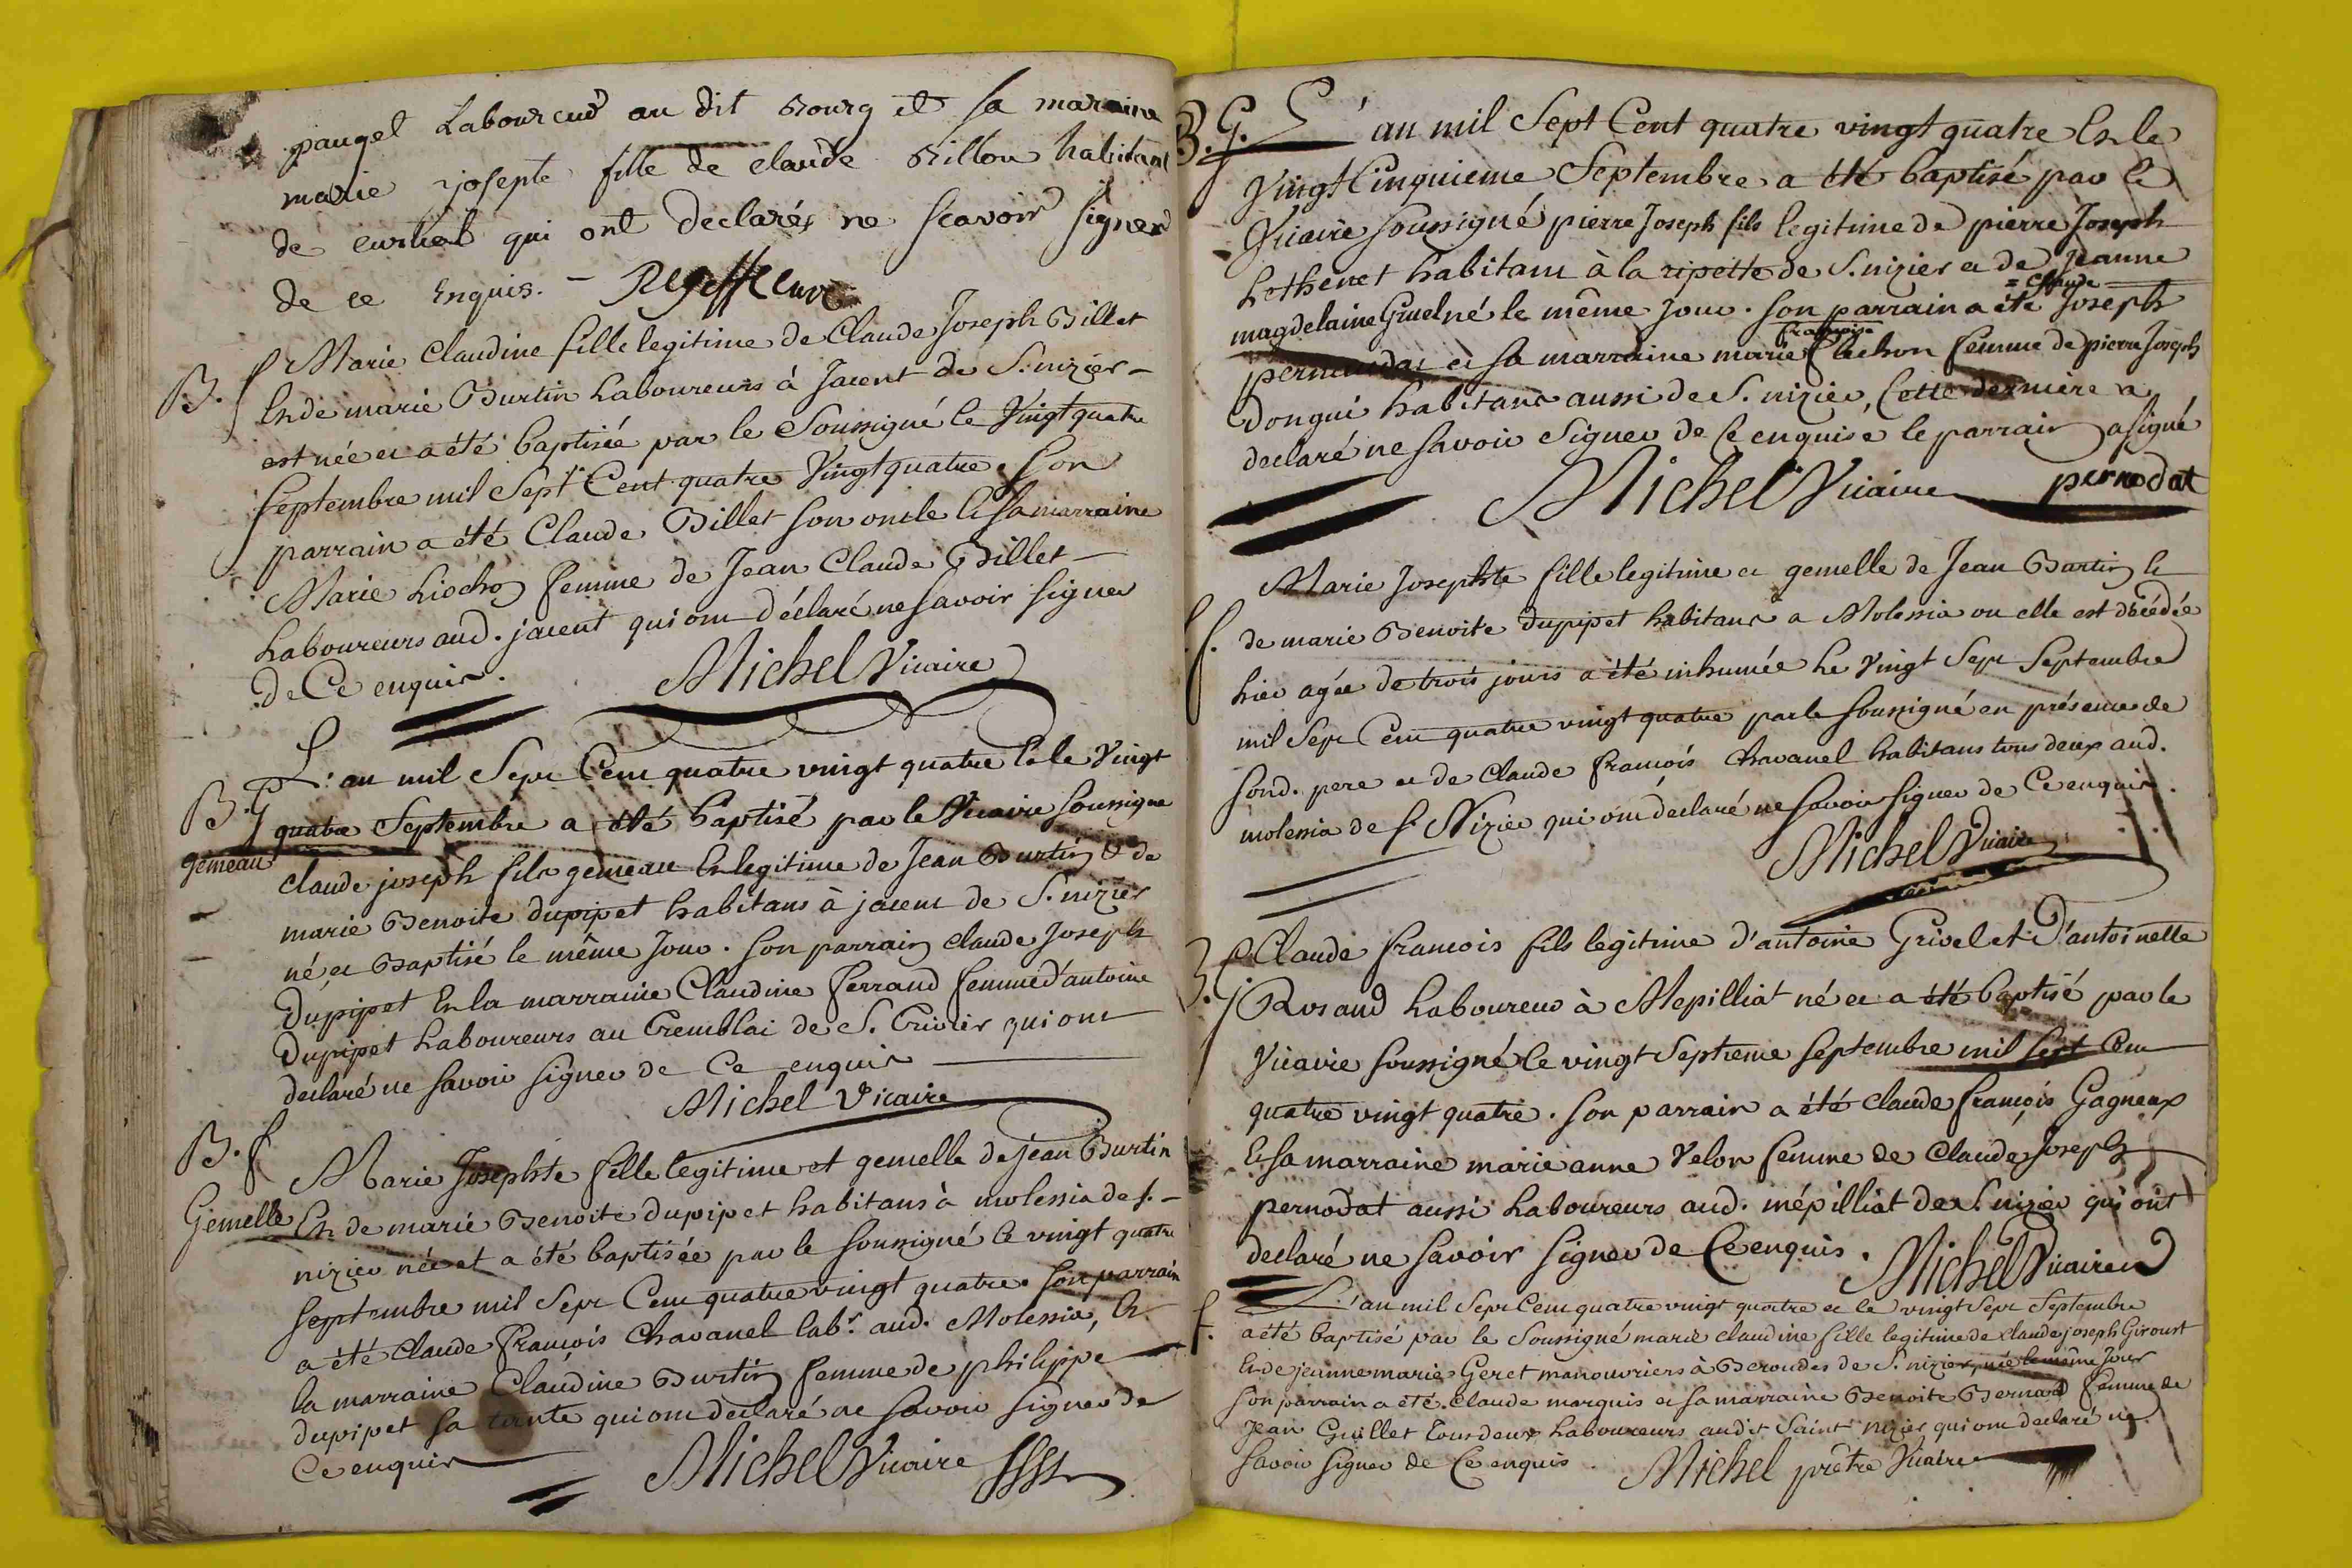 paugel Laboureur au dit Bourg et sa maraine
marie josepte fille de claude Billon habitant
de curtiel qui ont declarés ne scavoir signer
de ce Enquis.
B. f Marie Claudine fille legitime de Claude Joseph Billet
Et de marie Burtin Laboureurs à Jacent de S. nizier
est née et a été baptisée par le Soussigné le Vingt quatre
Septembre mil Sept Cent quatre Vingt quatre. Son
parrain a été Claude Billet son oncle Et sa marraine
Marie Liochon femme de Jean Claude Billet
Laboureurs aud. jacent qui ont déclaré ne savoir signer
de Ce enquis. Michel Vicaire
L'an mil Sept Cent quatre vingt quatre Et le Vingt
B. G quatre Septembre a été baptisé par le Vicaire soussigné
gémeau claude joseph fils gemeau Et legitime de Jean Burtin & de
marie Benoite dupipet habitans à jacent de S. nizier
né et Baptisé le même Jour. Son parrain claude Joseph
Dupipet Et la marraine Claudine ferrand femme d'antoine
Dupipet Laboureurs au Tremblai de S. Trivier qui ont
declaré ne savoir signer de Ce enquis
Michel Vicaire
B. f Marie Josephte fille legitime et gemelle de jean Burtin
Gémelle Et de marie Benoite dupipet habitans à molessia de s.
nizier née et a été baptisée par le soussigné le vingt quatre
septembre mil Sept Cent quatre vingt quatre. Son parrain
a été Claude françois Chavanel labr. aud. Molessia, Et
la marraine Claudine Burtin femme de philippe
dupipet sa tante qui ont declaré ne savoir signer de
Ce enquis Michel Vicaire
B. G. L'an mil Sept Cent quatre vingt quatre Et le
Vingt Cinquieme Septembre a été baptisé par le
Vicaire soussigné pierre Joseph fils legitime de pierre Joseph
Lethenet habitant à la ripette de S. nizier et de Jeanne
= Claude
magdelaine Gruel né le même Jour. Son parrain a été Joseph
françoise
pernodat et sa marraine marie Cochon femme de pierre Joseph
Dongui habitans aussi de S. nizier, Cette derniere a
declaré ne savoir signer de Ce enquise le parrain a signé
Michel Vicaire pernodat
Marie Josephte fille legitime et gemelle de Jean Burtin &
f. de marie Benoite dupipet habitans a Molessia ou elle est décédée
hier agée de trois jours a été inhumée Le Vingt Sept Septembre
mil Sept Cent quatre vingt quatre par le soussigné en présence de
sond. pere et de Claude françois Chavanel habitans tous deux aud.
molessia de S. Nizier qui ont declaré ne savoir signer de Ce enquis.
Michel Vicaire
Claude françois fils legitime d'antoine Grivel et D'antoinette
B. G. Rosand Laboureur à Mepilliat né et a été baptisé par le
Vicaire soussigné le vingt Septieme septembre mil sept Cent
quatre vingt quatre. Son parrain a été claude françois Gagneux
Et sa marraine marie anne Velon femme de Claude Joseph
pernodat aussi Laboureurs aud. mépilliat de S. nizier qui ont
declaré ne savoir signer de Ce enquis. Michel Vicaire
f. L'an mil Sept Cent quatre vingt quatre et le vingt Sept Septembre
a été baptisé par le Soussigné marie claudine fille legitime de claude joseph Giroust
Et de jeanne marie Geret manouvriers à Beroudes de S. nizier, née le même Jour
Son parrain a été claude marquis et sa marraine Benoite Bernard femme de
Jean Guillet tous deux Laboureurs audit Saint nizier qui ont declaré ne
savoir signer de Ce enquis. Michel prêtre Vicaire